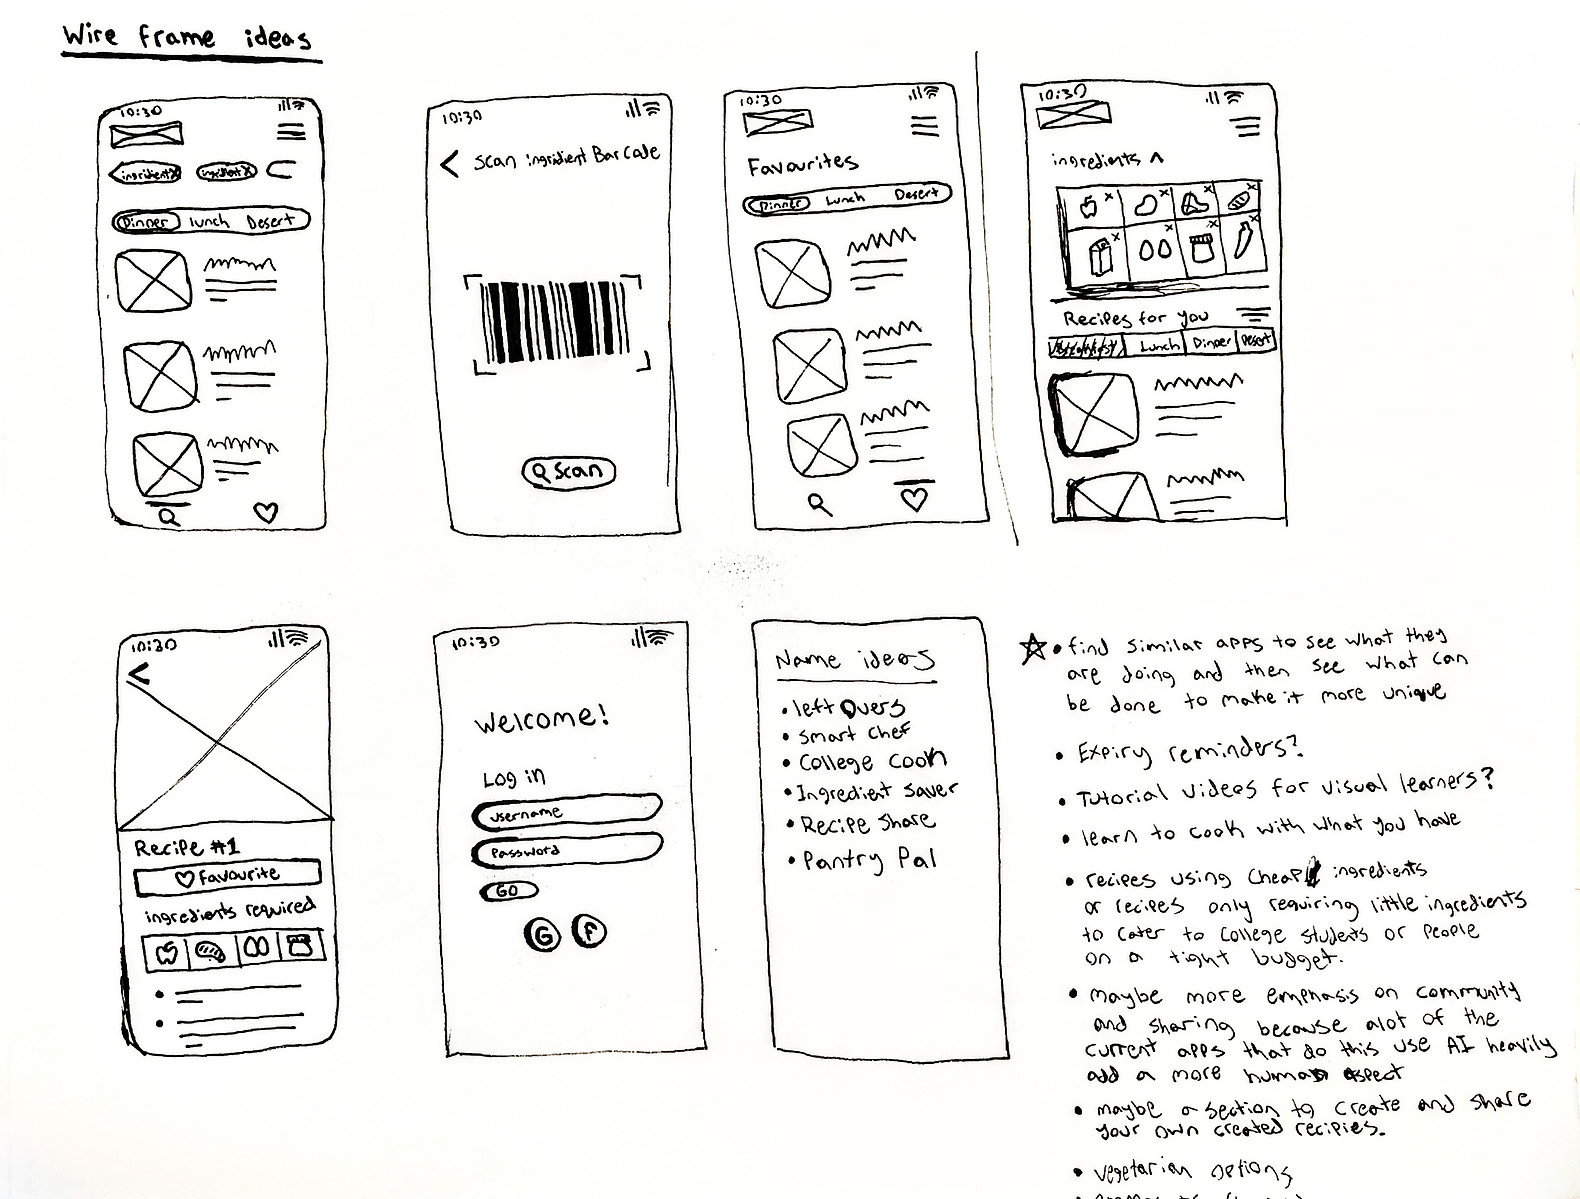 Wire frame ideas
10:30
ingridient X
Dinner Lunch Desert
10:30
< Scan ingridient Bar Code
Scan
10:30
Favourites
Dinner Lunch Desert
10:30
ingredients ^
Recipes for you
Lunch Dinner Desert
10:30
<
Recipe #1
♡ favourite
ingredients required
10:30
Welcome!
Log in
username
Password
GO
G F
Name ideas
• left Overs
• Smart Chef
• College Cook
• Ingredient Saver
• Recipe Share
• Pantry Pal
☆ • find similar apps to see what they
are doing and then see what can
be done to make it more unique
• Expiry reminders?
• Tutorial videos for visual learners?
• learn to cook with what you have
• recipes using Cheap ingredients
or recipes only requiring little ingredients
to cater to College students or People
on a tight budget.
• maybe more emphasis on community
and sharing because alot of the
current apps that do this use AI heavily
add a more human aspect
• maybe a section to create and share
your own created recipies.
• vegetarian options